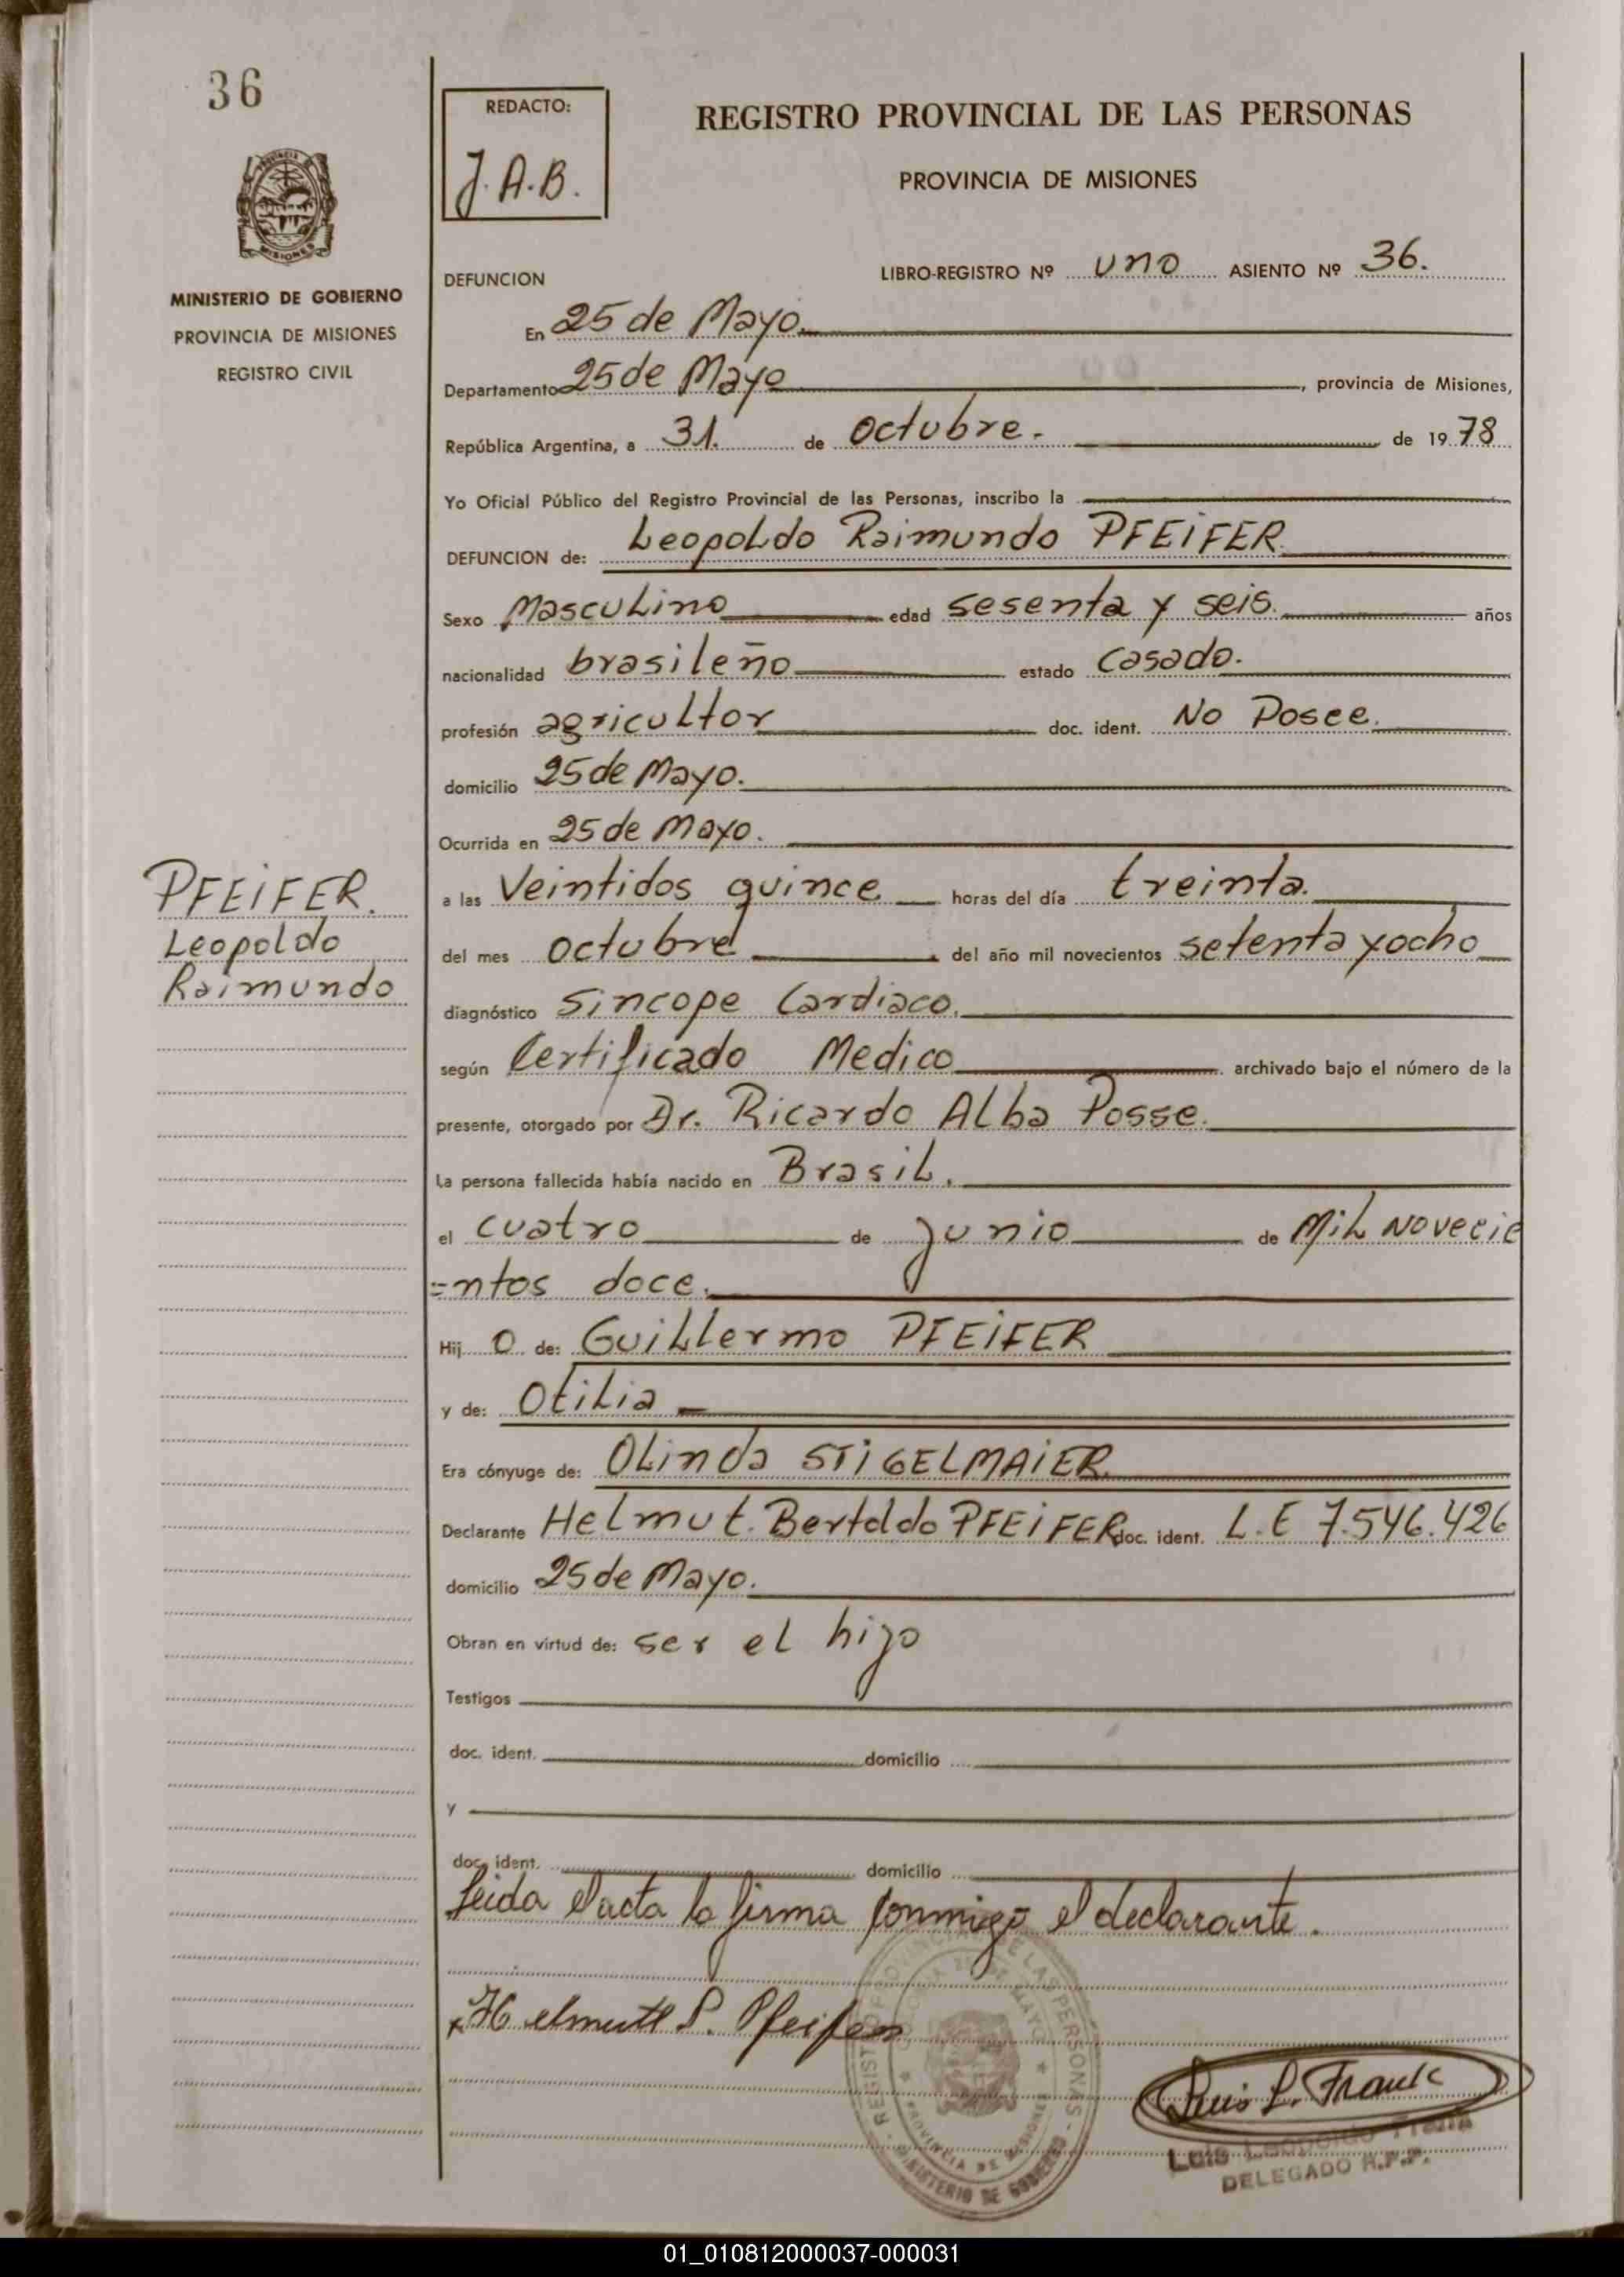 36
MISIONES
MINISTERIO DE GOBIERNO
PROVINCIA DE MISIONES
REGISTRO CIVIL
PFEiFER.
Leopoldo
Raimundo
REDACTO:
J.A.B.
REGISTRO PROVINCIAL DE LAS PERSONAS
PROVINCIA DE MISIONES
DEFUNCION
LIBRO-REGISTRO Nº uno ASIENTO Nº 36.
En 25 de Mayo.
Departamento 25 de Mayo, provincia de Misiones,
República Argentina, a 31. de Octubre. de 1978
Yo Oficial Público del Registro Provincial de las Personas, inscribo la
DEFUNCION de: Leopoldo Raimundo PFEiFER
Sexo Masculino edad sesenta y seis. años
nacionalidad brasileño estado Casado.
profesión agricultor doc. ident. No Posee.
domicilio 25 de Mayo.
Ocurrida en 25 de Mayo.
a las Veintidos quince horas del día treinta.
del mes octubre del año mil novecientos setenta y ocho
diagnóstico Sincope Cardiaco.
según Certificado Medico archivado bajo el número de la
presente, otorgado por Dr. Ricardo Alba Posse.
La persona fallecida había nacido en Brasil.
el cuatro de junio de Mil Novecie
=ntos doce.
Hij o de: Guillermo PFEiFER
y de: Otilia
Era cónyuge de: Olinda STiGELMAiER.
Declarante Helmut. Bertoldo PFEiFER doc. ident. L.E 7.546.426
domicilio 25 de Mayo.
Obran en virtud de: ser el hijo
Testigos
doc. ident. domicilio
y
doc. ident. domicilio
Leida el acta la firma conmigo el declarante.
Pfeifer
REGISTRO PROVINCIAL DE LAS PERSONAS
PROVINCIA DE MISIONES
MINISTERIO DE GOBIERNO
Luis L. Frank
Luis Leopoldo Frank
DELEGADO R.P.P.
01_010812000037-000031